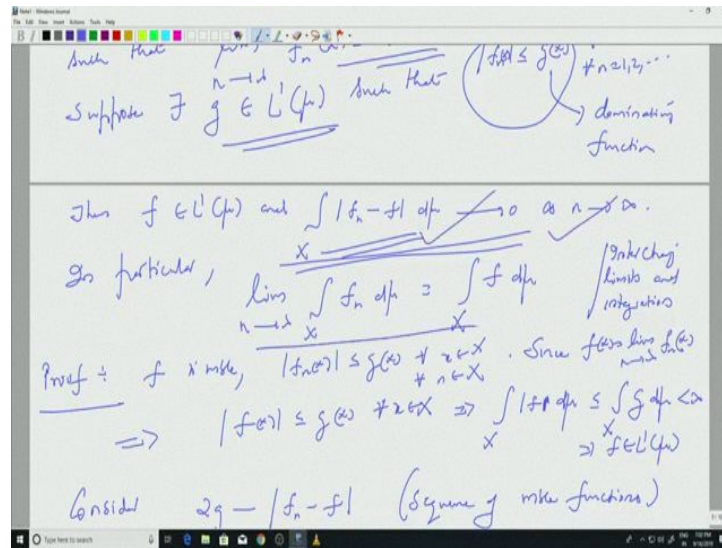 Note1 - Windows Journal
File Edit View Insert Actions Tools Help
such that
n→∞
|fₙ(x)| ≤ g(x)
∀ n=1,2,...
Suppose ∃ g ∈ L¹(μ) such that
dominating
function
Then f ∈ L¹(μ) and ∫_X |fₙ - f| dμ → 0 as n → ∞.
In particular,
lim_{n→∞} ∫_X fₙ dμ = ∫_X f dμ
limits and
integration
Proof: f is mble, |fₙ(x)| ≤ g(x) ∀ x∈X ∀ n∈ℕ. Since f(x) = lim_{n→∞} fₙ(x)
⇒ |f(x)| ≤ g(x) ∀ x∈X ⇒ ∫_X |f| dμ ≤ ∫_X g dμ < ∞
⇒ f∈L¹(μ)
Consider 2g - |fₙ - f| (Sequence of mble functions)
Type here to search